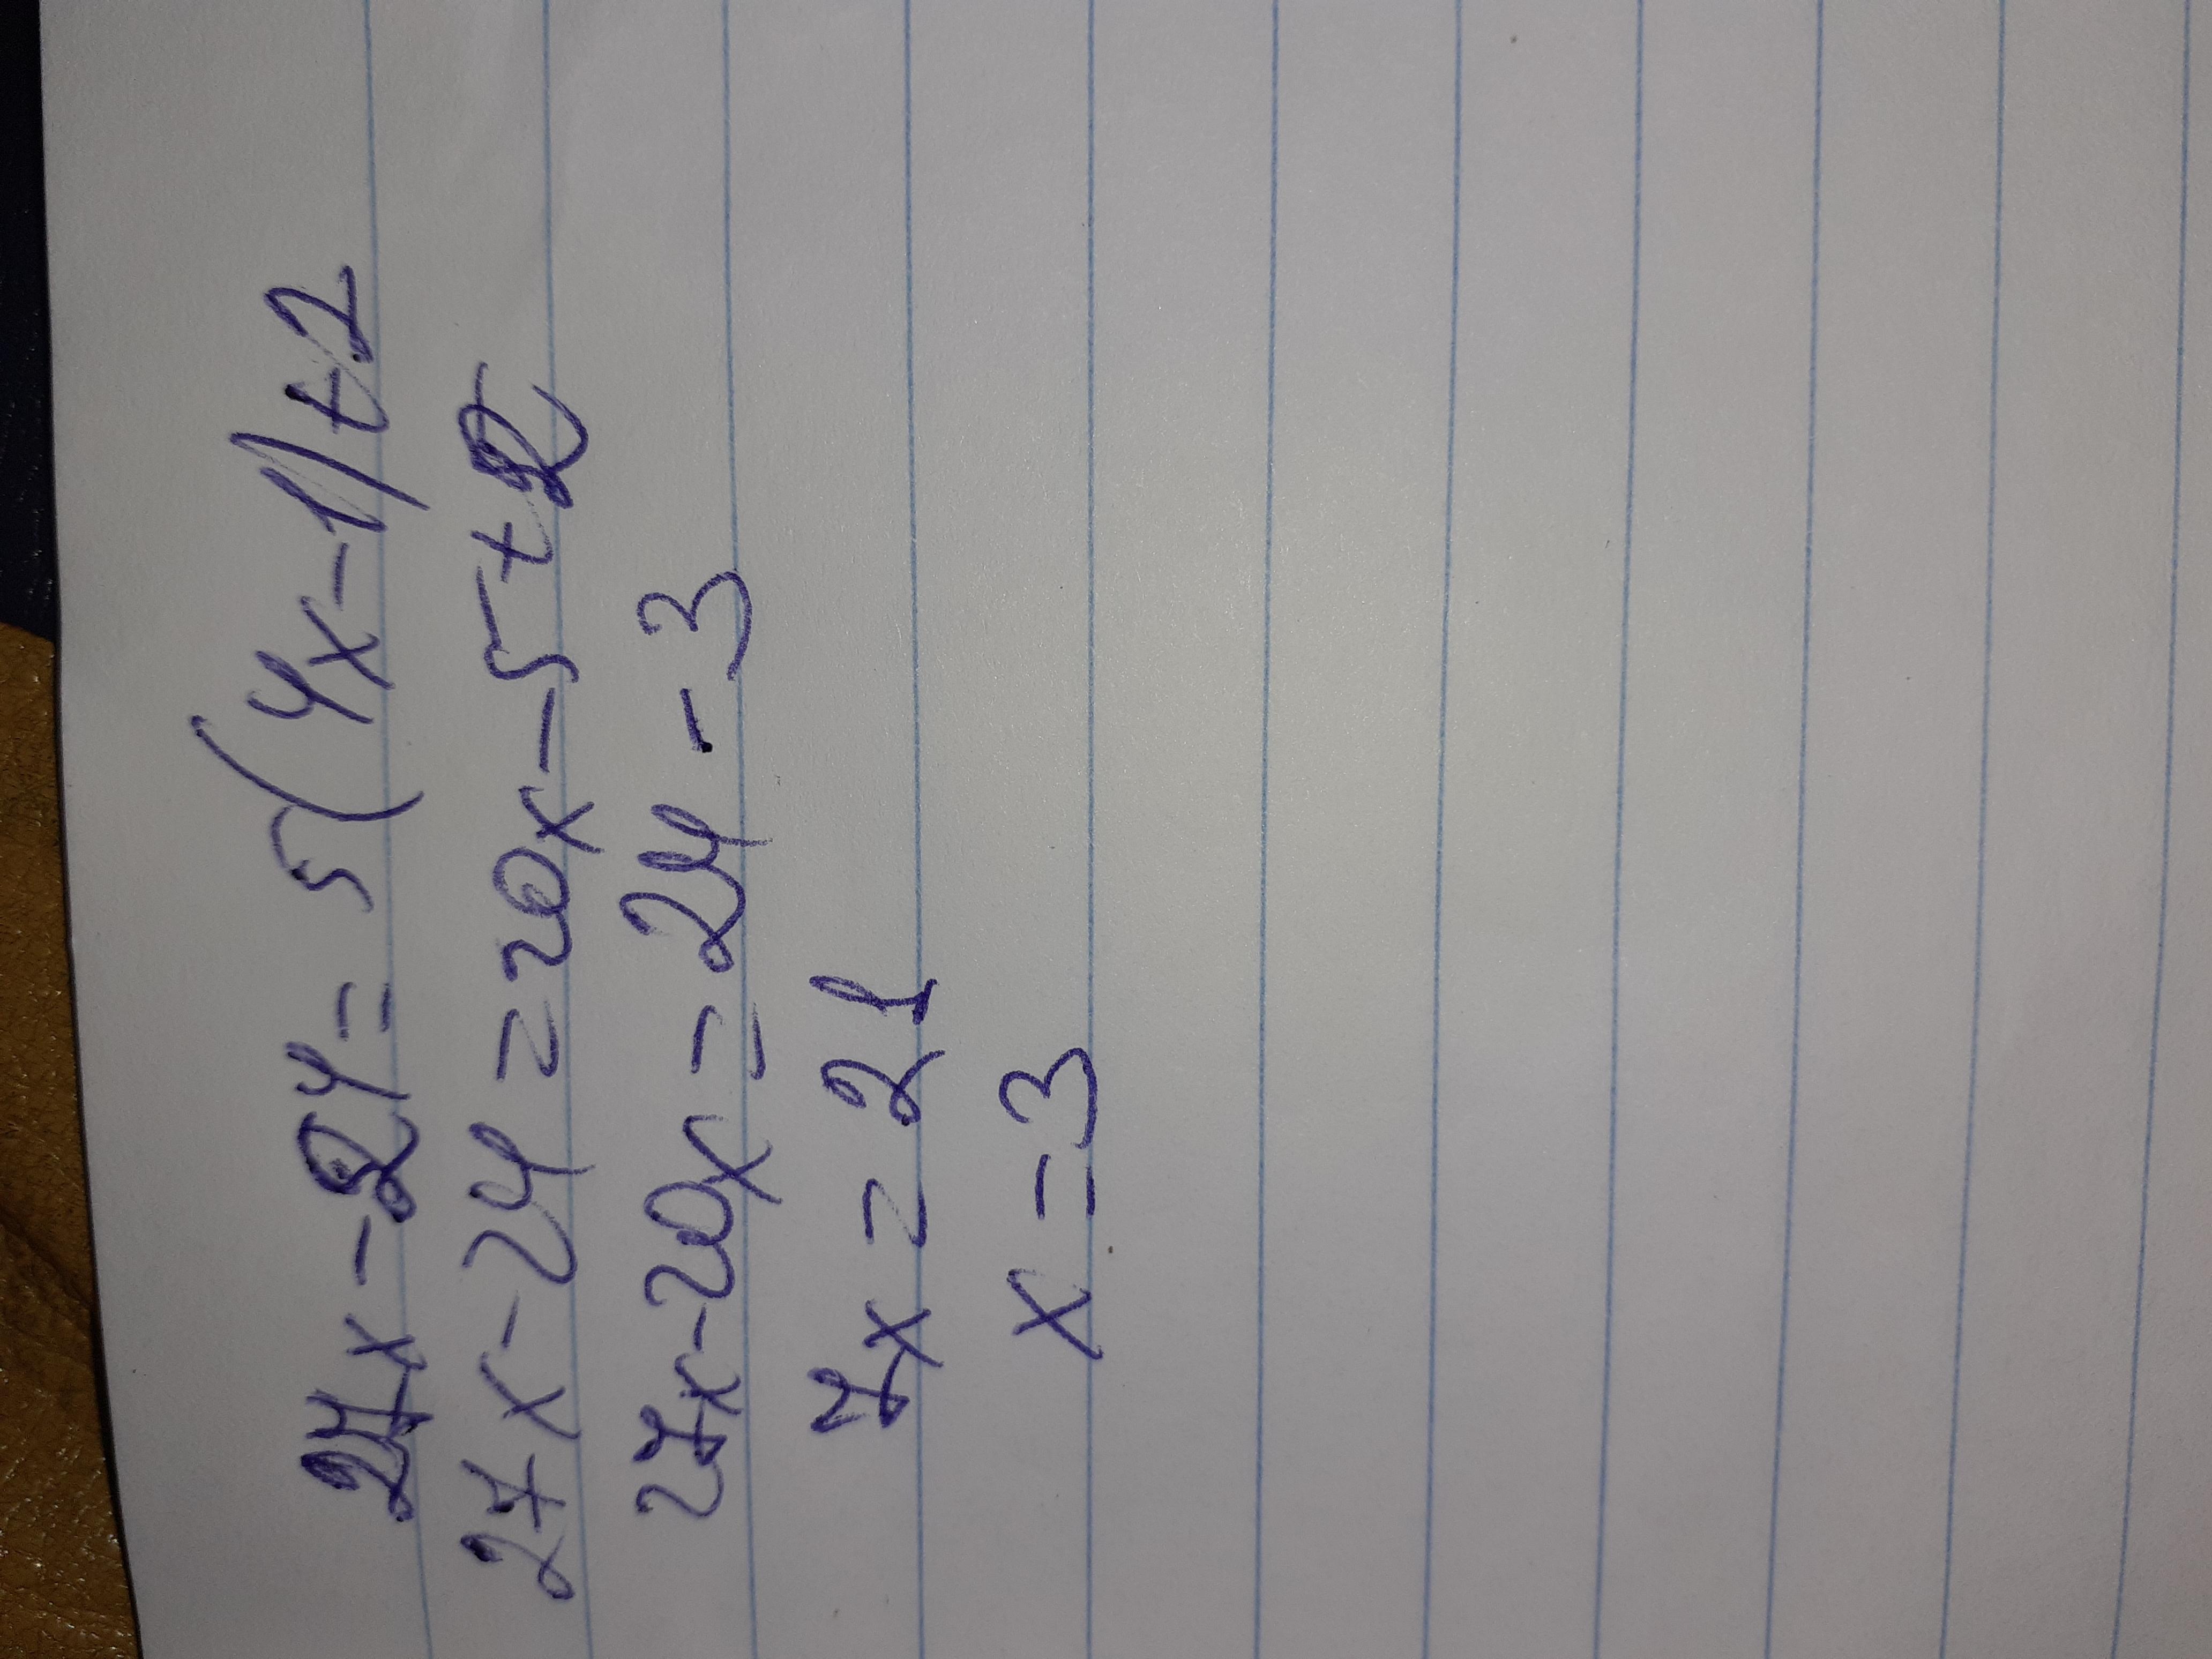 27x-24=5(4x-1)+2
27x-24=20x-5+2
27x-20x=24-3
7x=21
x=3